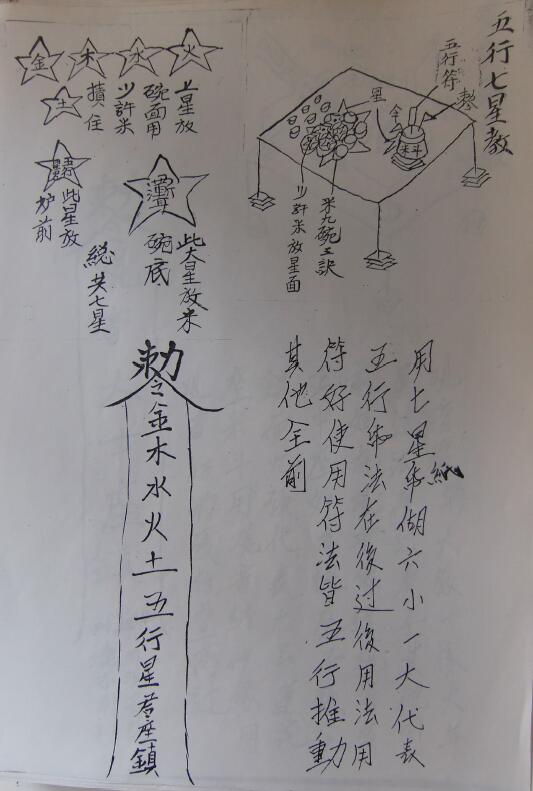 五行七星教
五行符
米九碗
少許米放星面
金
木
水
火
土
上星放
碗面用
少許米
積住
此星放
炉前
此大星放米
碗底
總共七星
用七星紙 六小一大代表
五行 法在後过後用法用
符好使用符法皆五行推動
其他全前
勅令金木水火土五行星君座鎮